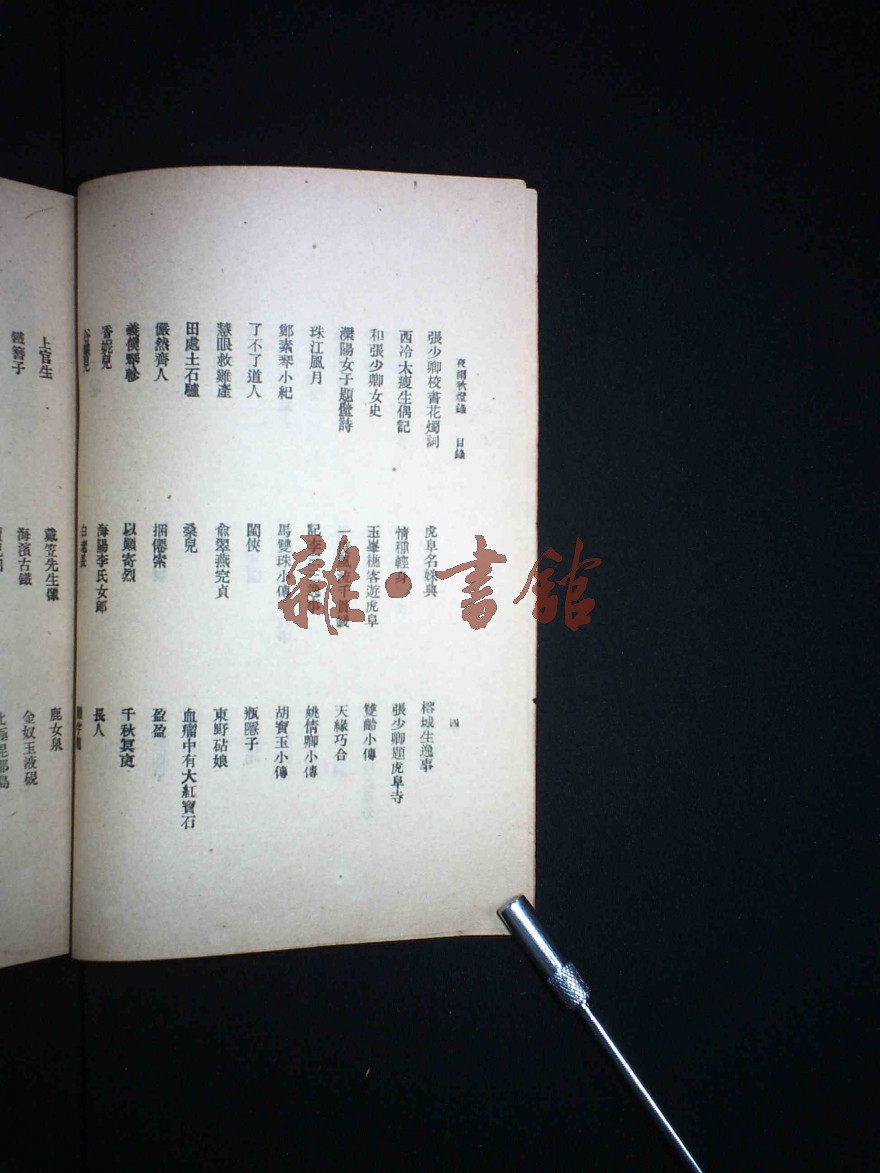 夜雨秋燈錄 目錄 四
張少卿校書花燭詞 虎阜名姝典 榕城生逸事
西泠太瘦生偶記 情種輕身 張少卿題虎阜寺
和張少卿女史 玉峯樵客遊虎阜 雙齡小傳
灤陽女子題壁詩 天緣巧合
珠江風月 姚倩卿小傳
鄭素琴小紀 馬雙珠小傳 胡寶玉小傳
了不了道人 閨俠 瓶隱子
慧眼救難產 俞翠燕完貞 東野砧娘
田處土石驢 桑兒 血瘤中有大紅寶石
儼然齊人 捆僊索 盈盈
以顚寄烈 千秋冥吏
香妮兒 海陽李氏女郞 長人
上官生 戴笠先生像 鹿女泉
鐵簫子 海濱古鐵 金奴玉液硯
雜·書館